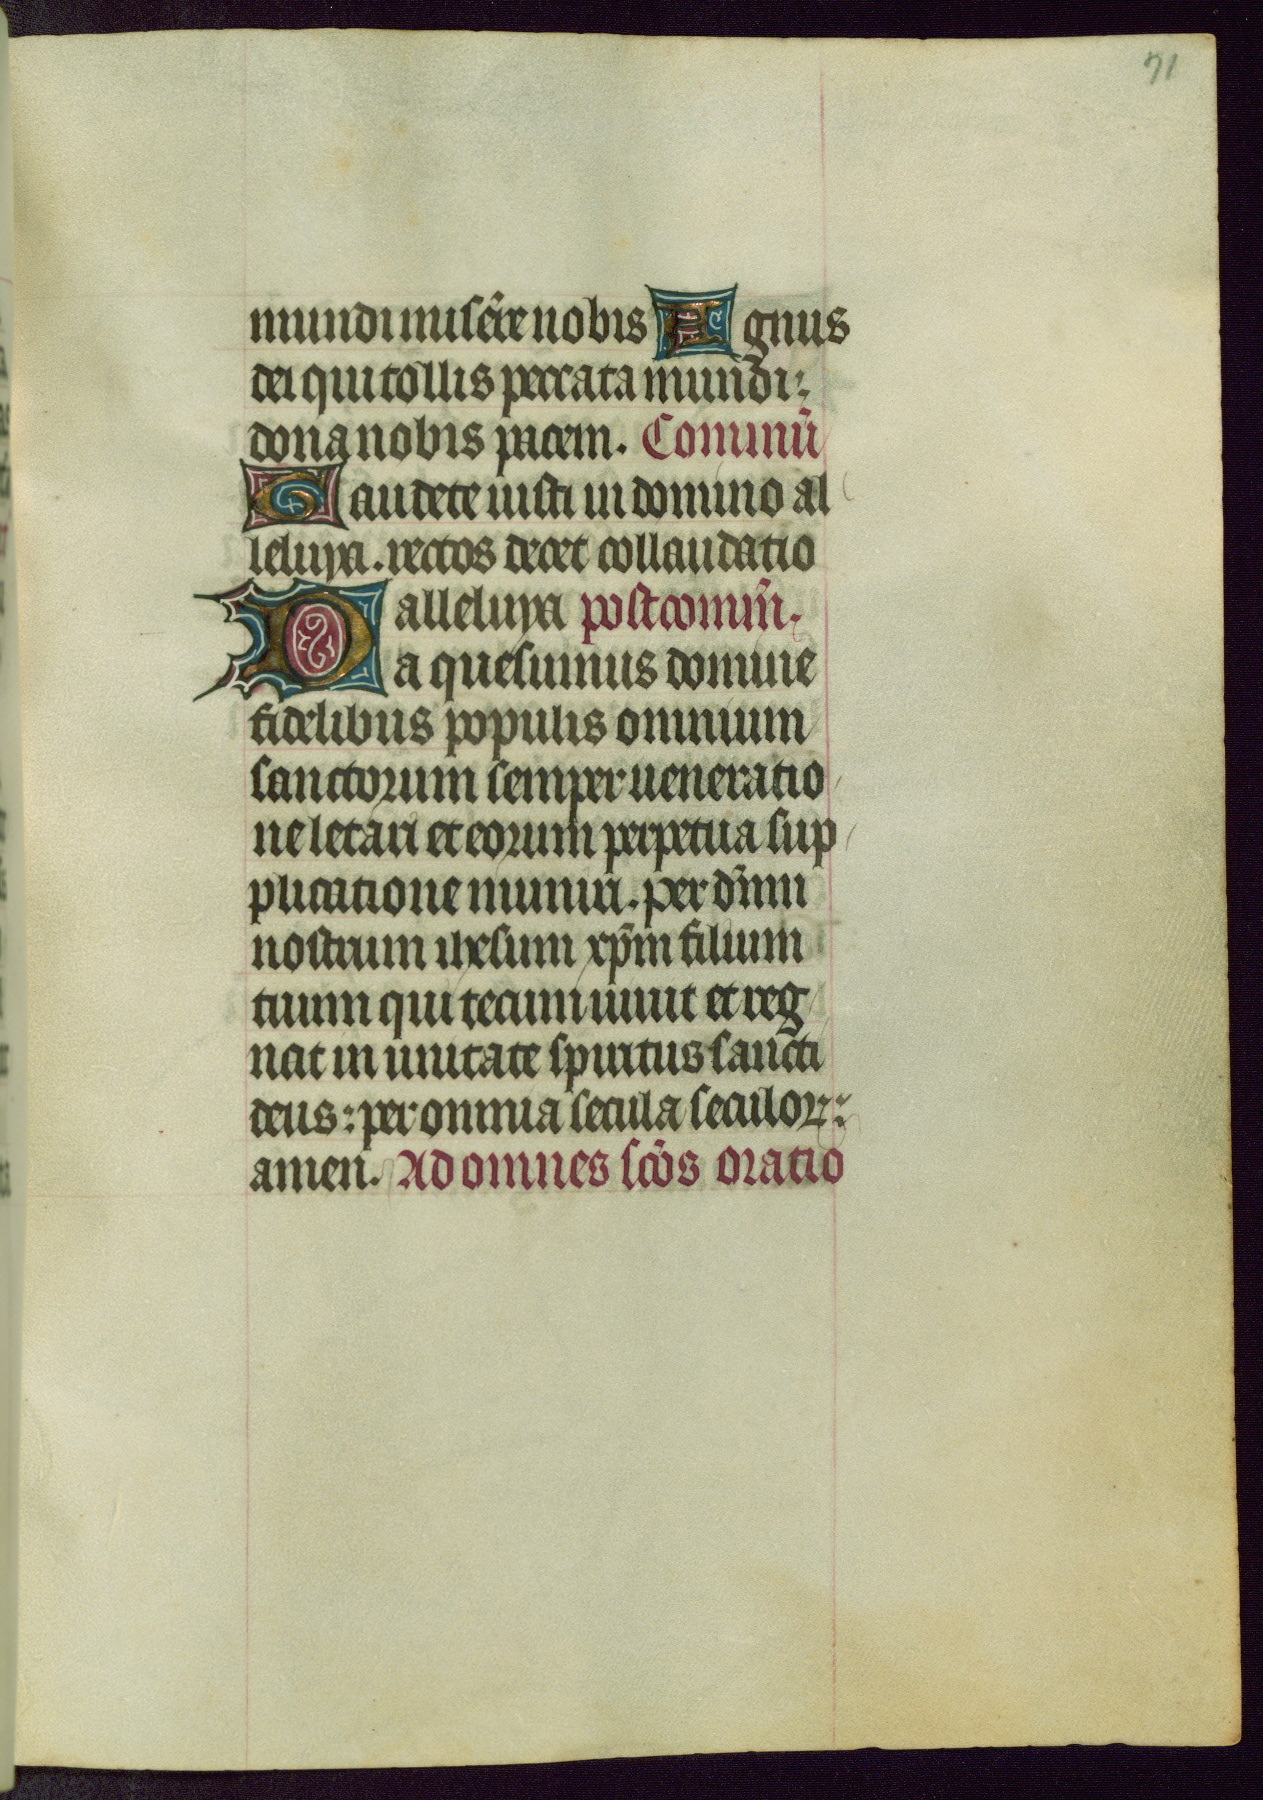 71
mundi misere̅re nobis Agnus
dei qui tollis peccata mundi:
dona nobis pacem. Comınu̅
Gaudete iusti in domino al
leluya. rectos decet collaudatio
alleluya postcomm̅.
Da quesumus domine
fidelibus populis omnium
sanctorum semper ueneratio
ne letari et eorum perpetua sup
plicatione muniri. per dn̅m
nostrum ihesum xp̅m filium
tuum qui tecum uiuit et reg
nat in unitate spiritus sancti
deus: per omnia secula seculoꝝ:
amen. Ad omnes sco̅s oratio